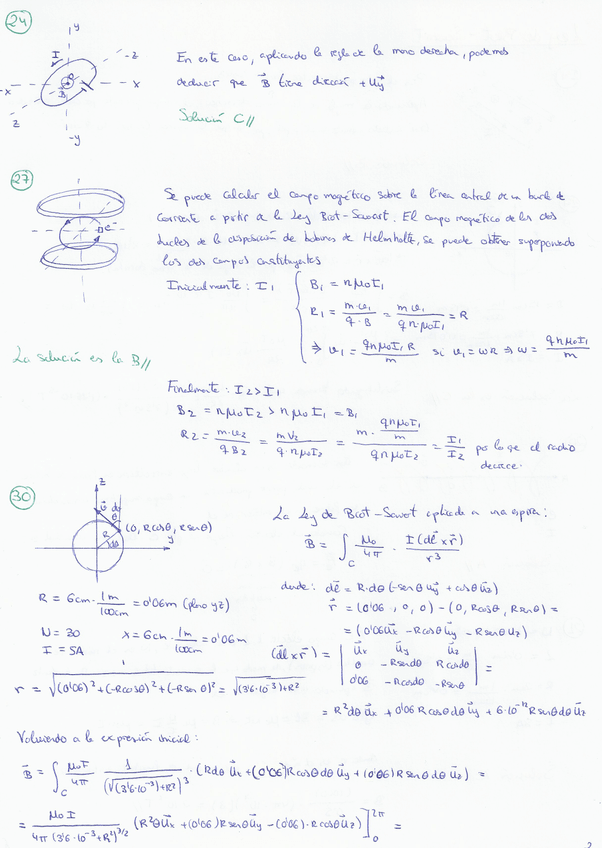 24
y
I
-z
-x
x
B
z
-y
En este caso, aplicando la regla de la mano derecha, podemos
deducir que B⃗ tiene dirección + u⃗y
Solución C//
27
Se puede calcular el campo magnético sobre la línea central de un bucle de
corriente a partir de la Ley Biot-Savart. El campo magnético de los dos
bucles de la disposición de bobinas de Helmholtz, se puede obtener superponiendo
los dos campos constituyentes
Inicialmente: I₁
B₁ = nμ₀I₁
R₁ = m·v₁/q·B = m v₁/q n·μ₀I₁ = R
⇒ v₁ = q n μ₀ I₁ R/m si v₁ = ωR ⇒ ω = q n μ₀ I₁/m
La solución es la B//
Finalmente: I₂ > I₁
B₂ = nμ₀I₂ > nμ₀I₁ = B₁
R₂ = m·v₂/q B₂ = m v₂/q·n·μ₀I₂ = m· q n μ₀ I₁/m / q n μ₀ I₂ = I₁/I₂ por lo que el radio
decrece.
30
z
(0, R cosθ, R senθ)
R
dθ
y
La Ley de Biot-Savart aplicada a una espira:
B⃗ = ∫C μ₀/4π · I(dl⃗ x r⃗)/r³
donde: dl⃗ = R·dθ(-senθ u⃗y + cosθ u⃗z)
R = 6cm · 1m/100cm = 0'06m (plano yz)
r⃗ = (0'06, 0, 0) - (0, Rcosθ, Rsenθ) =
= (0'06u⃗x - Rcosθ u⃗y - Rsenθ u⃗z)
N = 30 x = 6cm · 1m/100cm = 0'06m
I = 5A
(dl⃗ x r⃗) = | u⃗x u⃗y u⃗z |
0 -Rsenθ Rcosθ =
0'06 -Rcosθ -Rsenθ
r = √(0'06)² + (-Rcosθ)² + (-R senθ)² = √(3'6·10⁻³)+R²
= R²dθ u⃗x + 0'06 R cosθ dθ u⃗y + 6·10⁻² R senθ dθ u⃗z
Volviendo a la expresión inicial:
B⃗ = ∫C μ₀I/4π 1/(√(3'6·10⁻³)+R²)³ · (R dθ u⃗x + (0'06) R cosθ dθ u⃗y + (0'06) R senθ dθ u⃗z) =
= μ₀ I/4π (3'6·10⁻³+R²)^3/2 (R²θ u⃗x + (0'06) R senθ u⃗y - (0'06)·R cosθ u⃗z)]₀^2π =
2